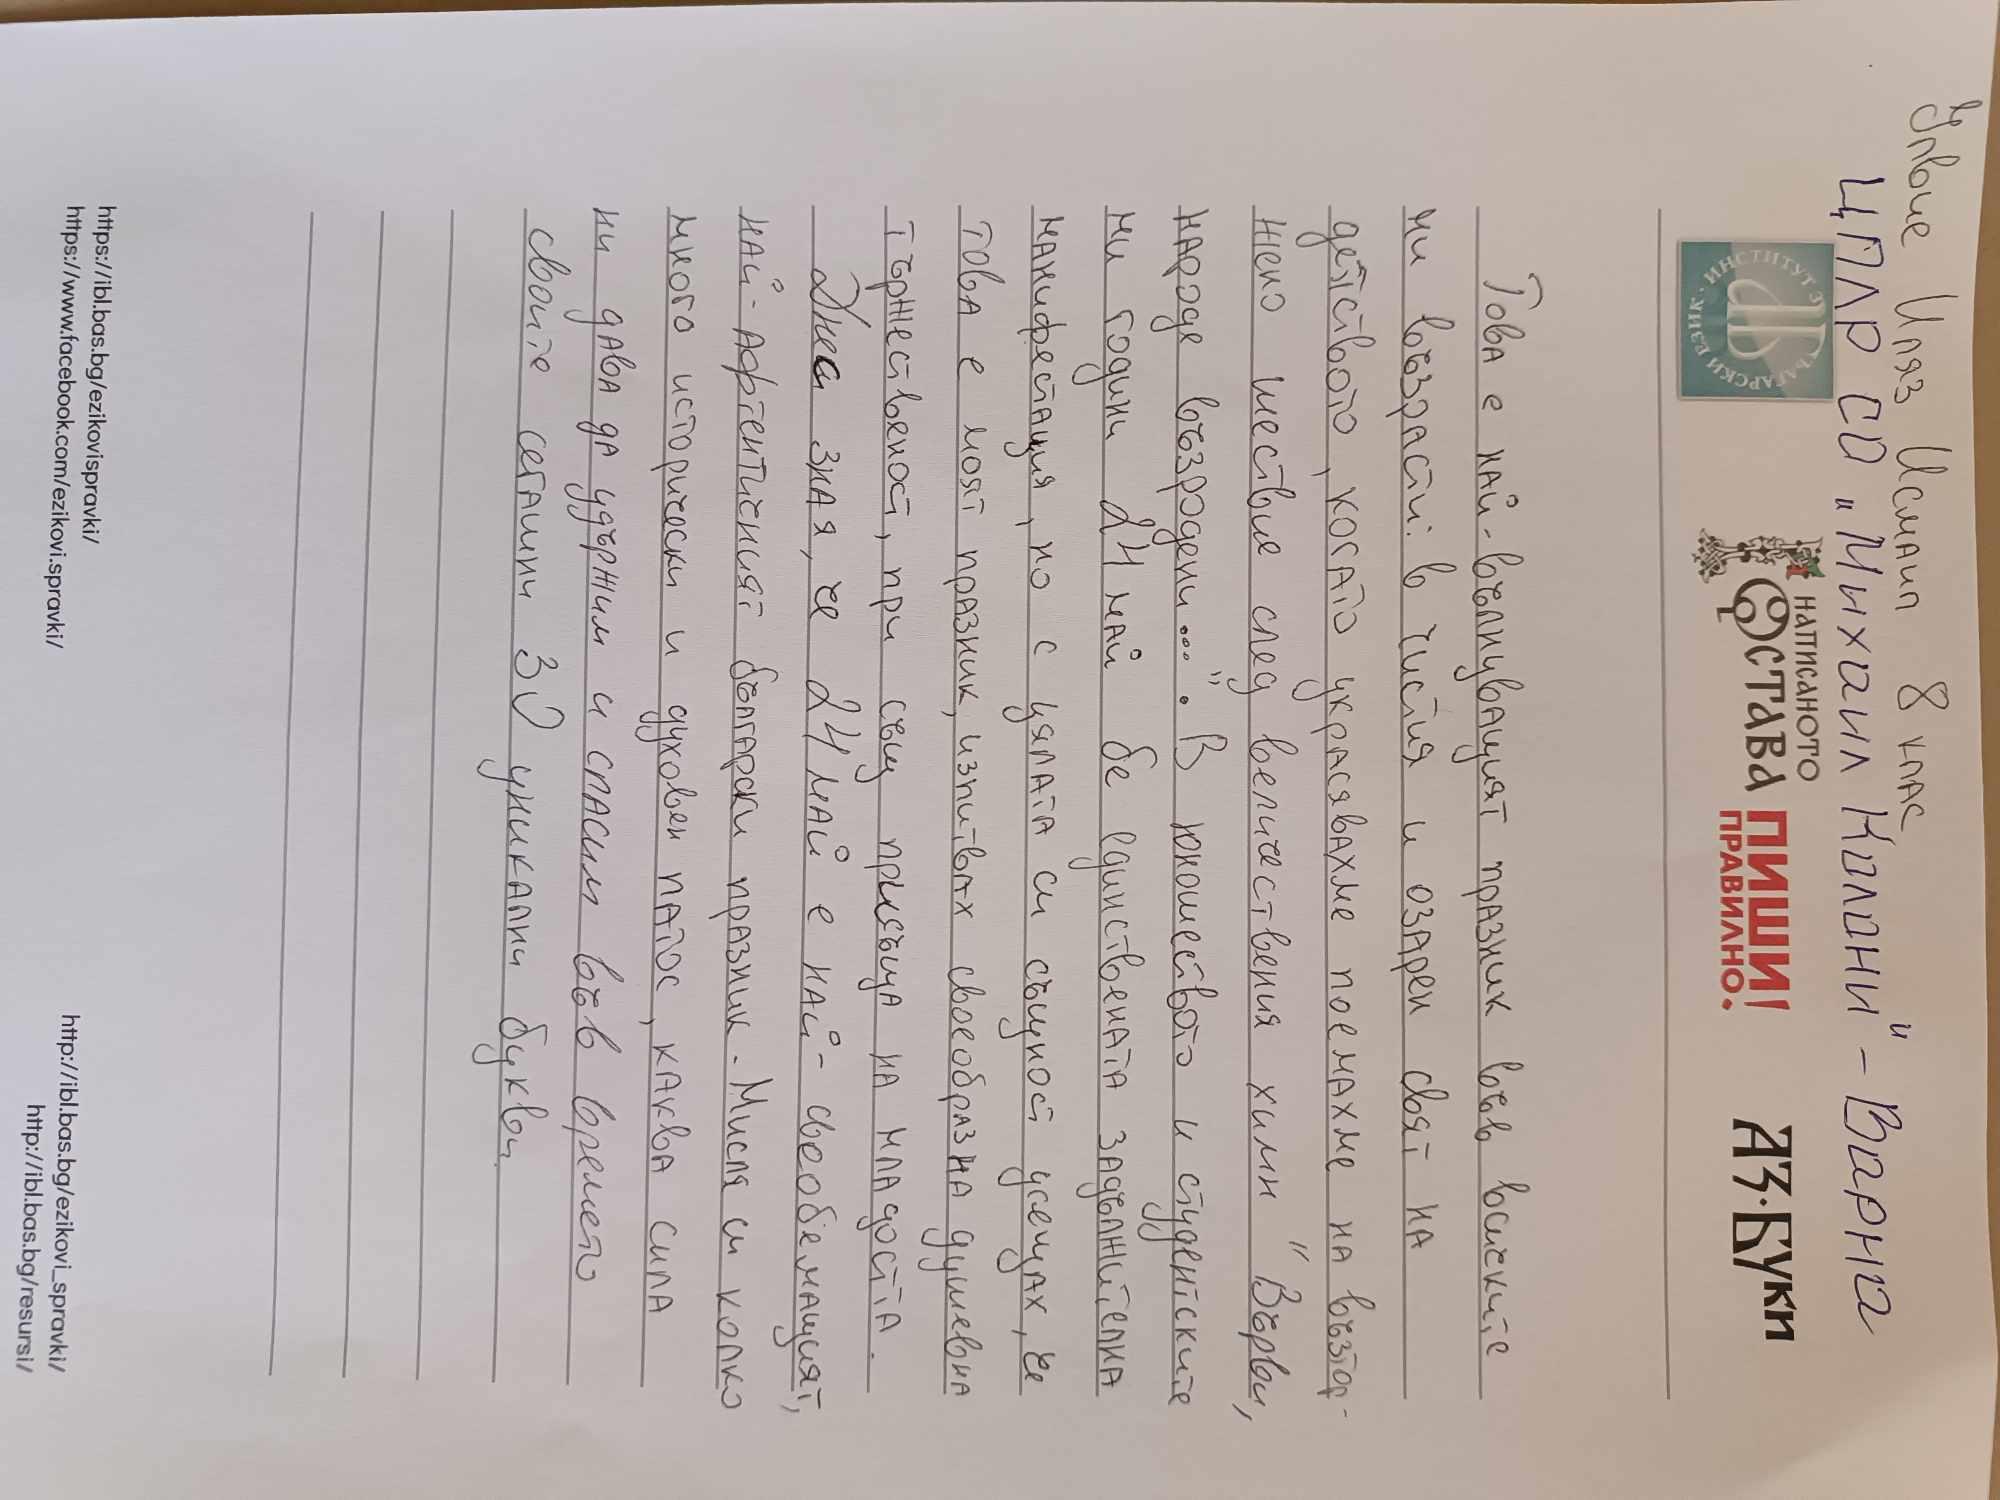 Иляз Исмаил 8 клас
ЦПЛР СО „Михаил Колони" - Варна
ИНСТИТУТ ЗА БЪЛГАРСКИ ЕЗИК
НАПИСАНОТО
ОСТАВА
ПИШИ
ПРАВИЛНО.
АЗ·БУКИ
Това е най-вълнуващият празник във всичките
ми възрасти: в чистия и озарен свят на
детството, когато украсявахме поемахме на възтор-
жено шествие след величествения химн "Върви,
народе възродени...". В юношеството и студентските
ми години 24 май бе единствената задължителна
манифестация, но с цялата си същност усещах, че
това е моят празник, изпитвах своеобразна душевна
тържественост, при същ присъща на младостта.
Днес зная, че 24 май е най-свеобемащият,
най-афтентичният български празник. Мисля си колко
много исторически и духовен патос, каква сила
ни дава да удържим и спасим във времето
своите сегашни 30 уникални букви.
https://ibl.bas.bg/ezikovispravki/
https://www.facebook.com/ezikovi.spravki/
http://ibl.bas.bg/ezikovi_spravki/
http://ibl.bas.bg/resursi/